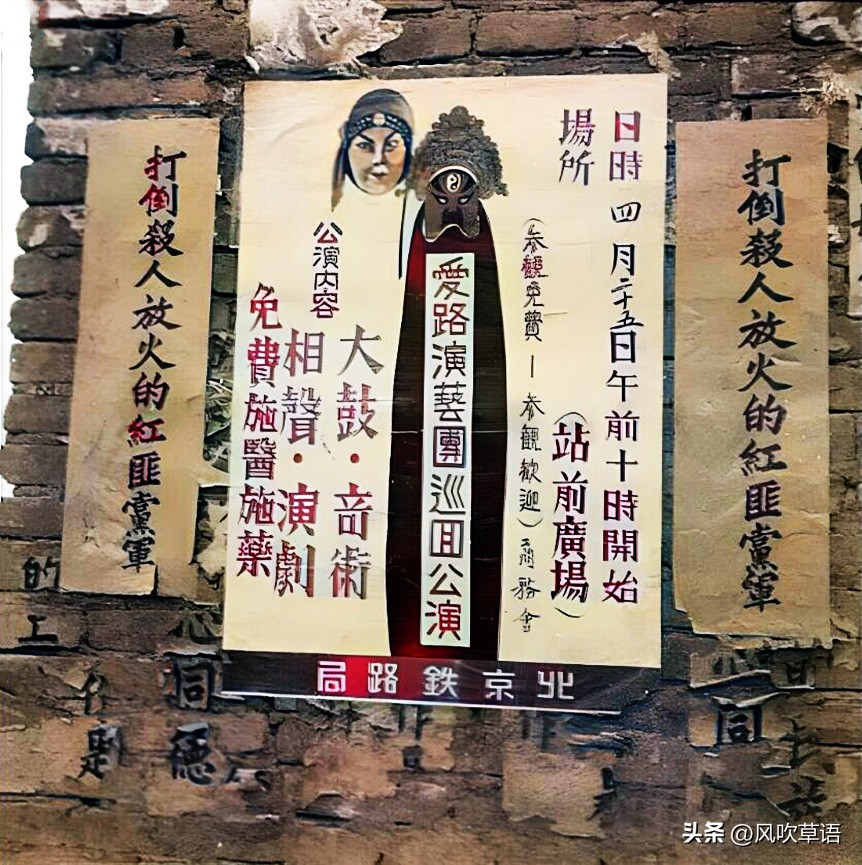 打倒殺人放火的紅匪黨軍
日時 四月二十五日午前十時開始
場所 (站前廣場)
(參觀免費—參觀歡迎)
愛路演藝團巡回公演
公演內容
大鼓·奇術
相聲·演劇
免費施醫施藥
北京鉄路局
打倒殺人放火的紅匪黨軍
的工
同
同
头条 @风吹草语